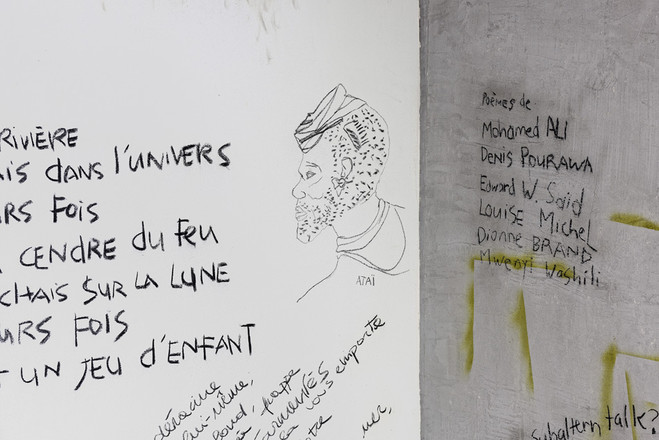 RIVIÈRE
is dans l'univers
URS FOIS
CENDRE du feu
chais sur la lune
URS FOIS
UN JEU d'ENFANT
ATAÏ
déracine
lui-même,
frappe
vous emporte
mer,
Poèmes de
Mohamed ALI
Denis POURAWA
Edward W. Said
Louise Michel
Dionne BRAND
Mwenyi Washili
subaltern talk?